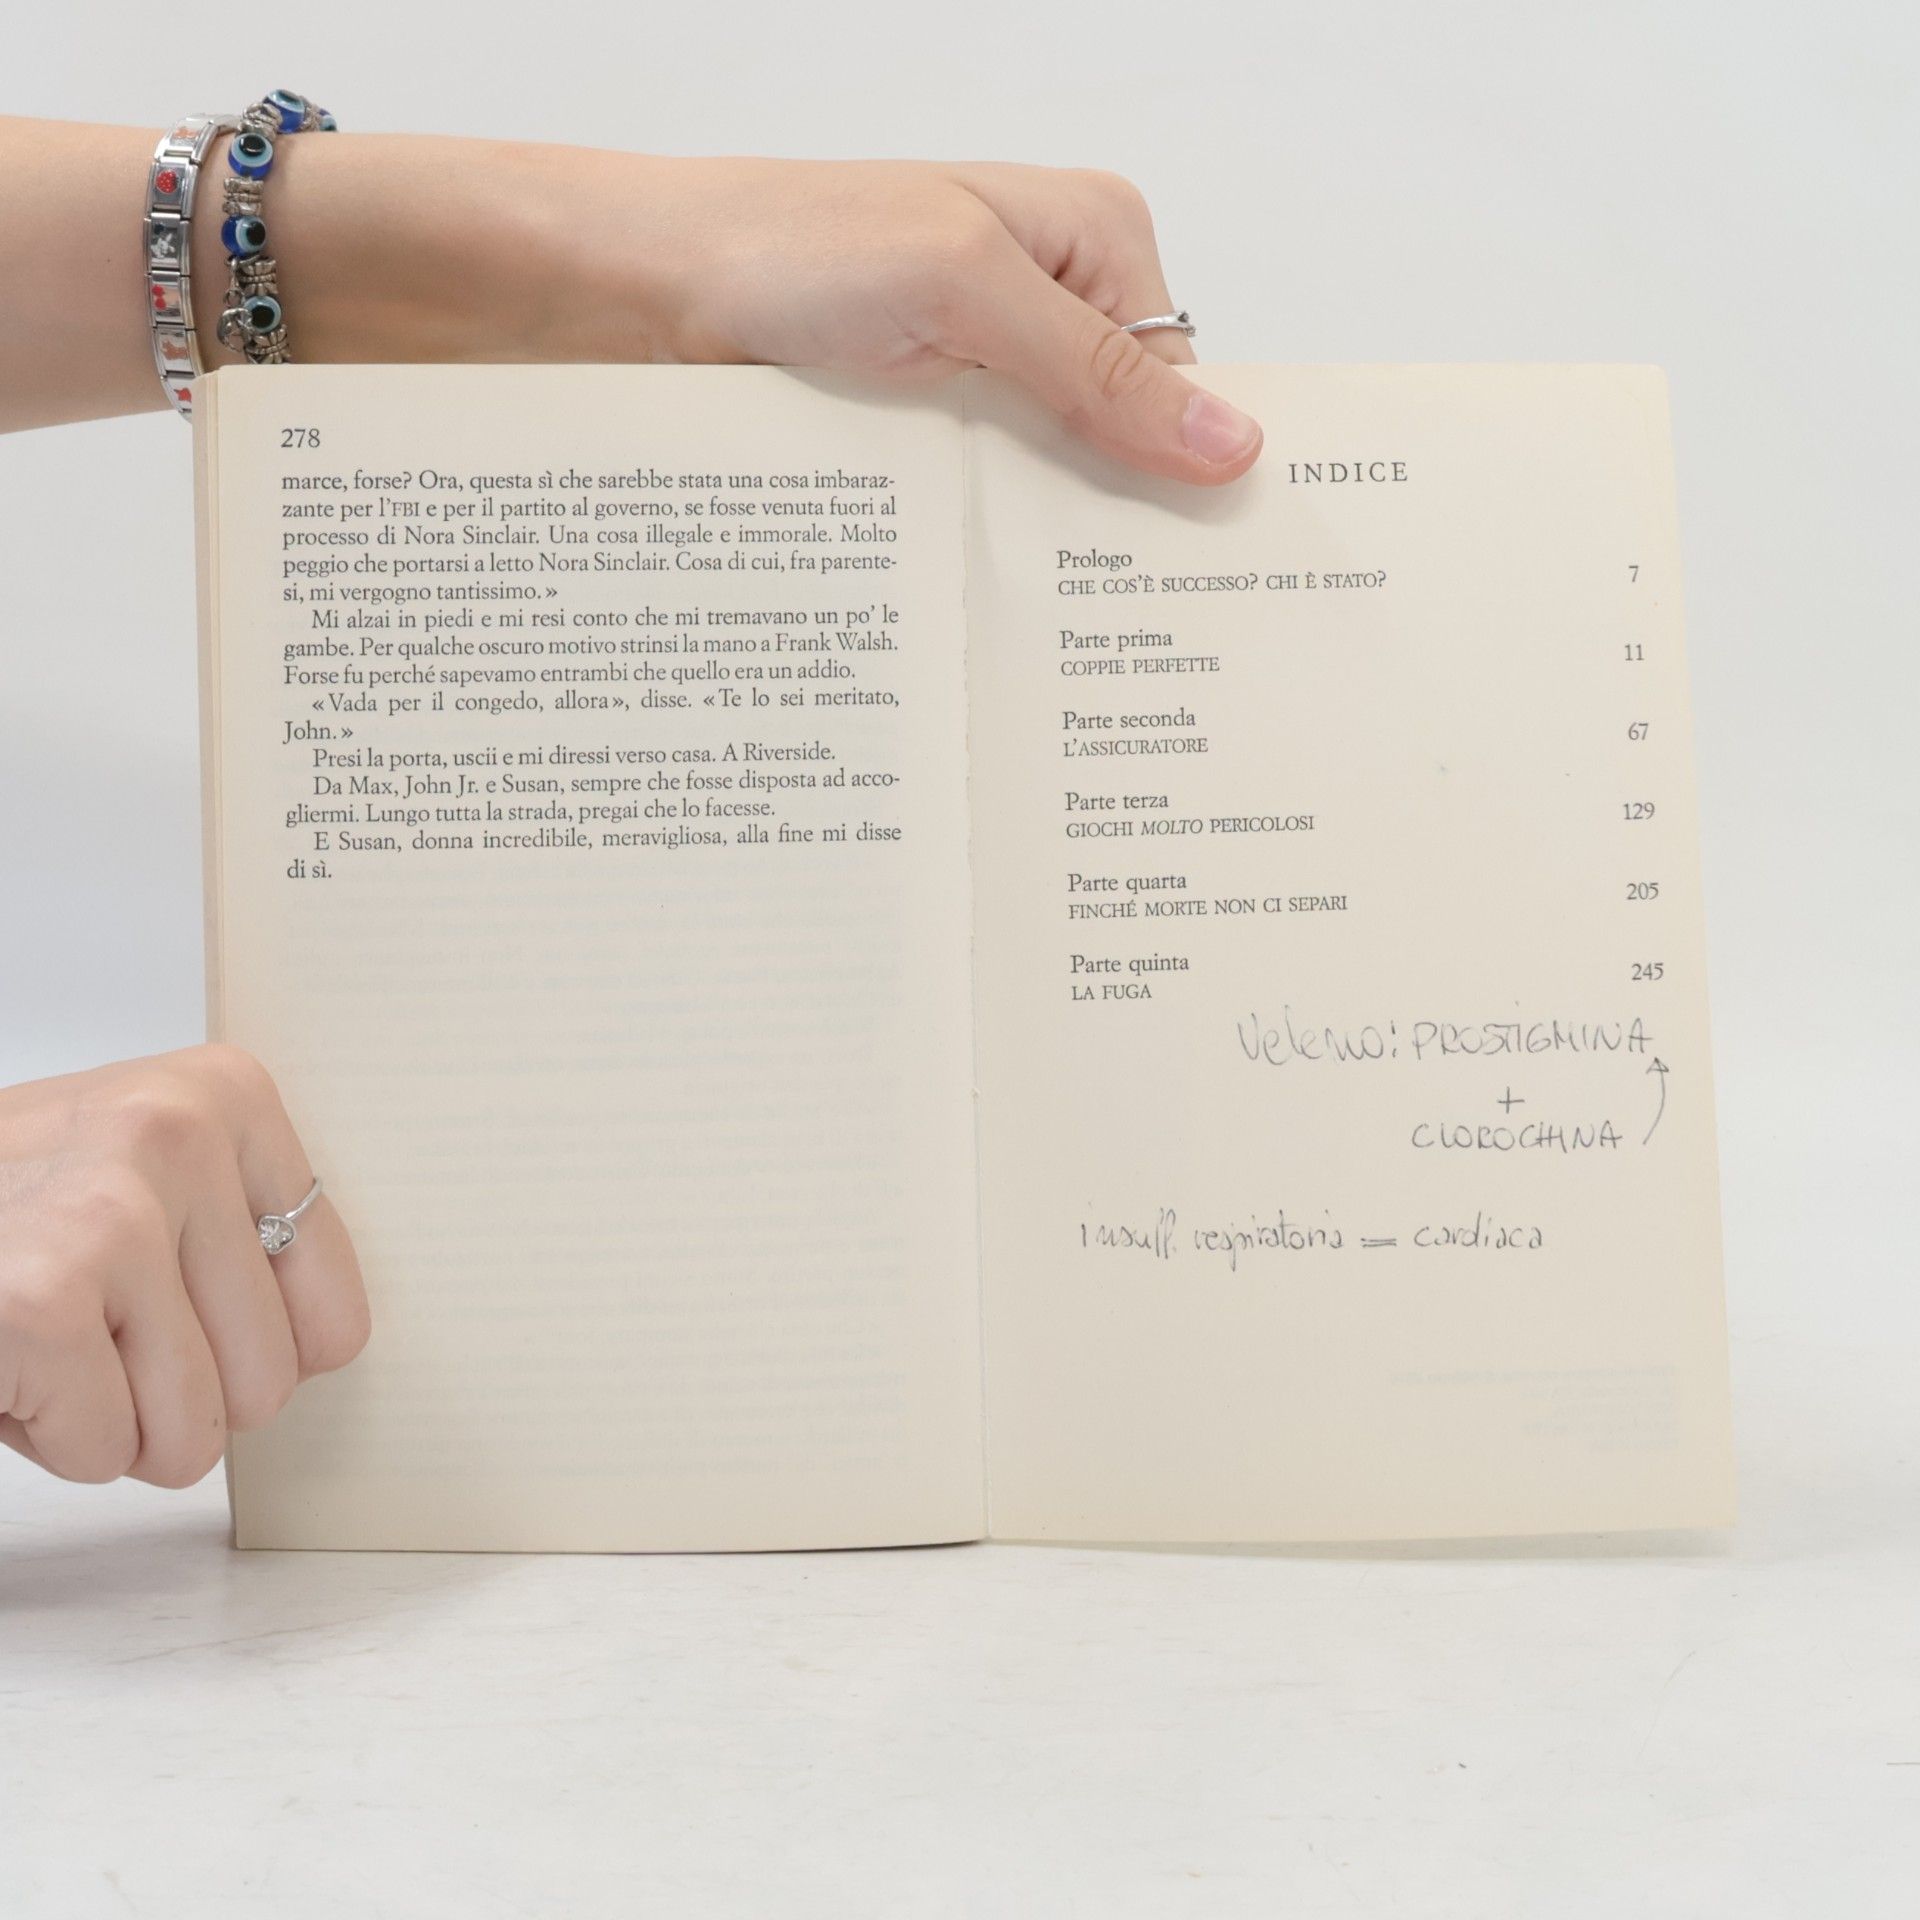 278
marce, forse? Ora, questa sì che sarebbe stata una cosa imbaraz-
zante per l'FBI e per il partito al governo, se fosse venuta fuori al
processo di Nora Sinclair. Una cosa illegale e immorale. Molto
peggio che portarsi a letto Nora Sinclair. Cosa di cui, fra parente-
si, mi vergogno tantissimo.»
Mi alzai in piedi e mi resi conto che mi tremavano un po' le
gambe. Per qualche oscuro motivo strinsi la mano a Frank Walsh.
Forse fu perché sapevamo entrambi che quello era un addio.
«Vada per il congedo, allora», disse. «Te lo sei meritato,
John.»
Presi la porta, uscii e mi diressi verso casa. A Riverside.
Da Max, John Jr. e Susan, sempre che fosse disposta ad acco-
gliermi. Lungo tutta la strada, pregai che lo facesse.
E Susan, donna incredibile, meravigliosa, alla fine mi disse
di sì.
INDICE
Prologo
CHE COS'È SUCCESSO? CHI È STATO? 7
Parte prima
COPPIE PERFETTE 11
Parte seconda
L'ASSICURATORE 67
Parte terza
GIOCHI MOLTO PERICOLOSI 129
Parte quarta
FINCHÉ MORTE NON CI SEPARI 205
Parte quinta
LA FUGA 245
Veleno: PROSTIGMINA
+
CLOROCHINA
insuff. respiratoria = cardiaca